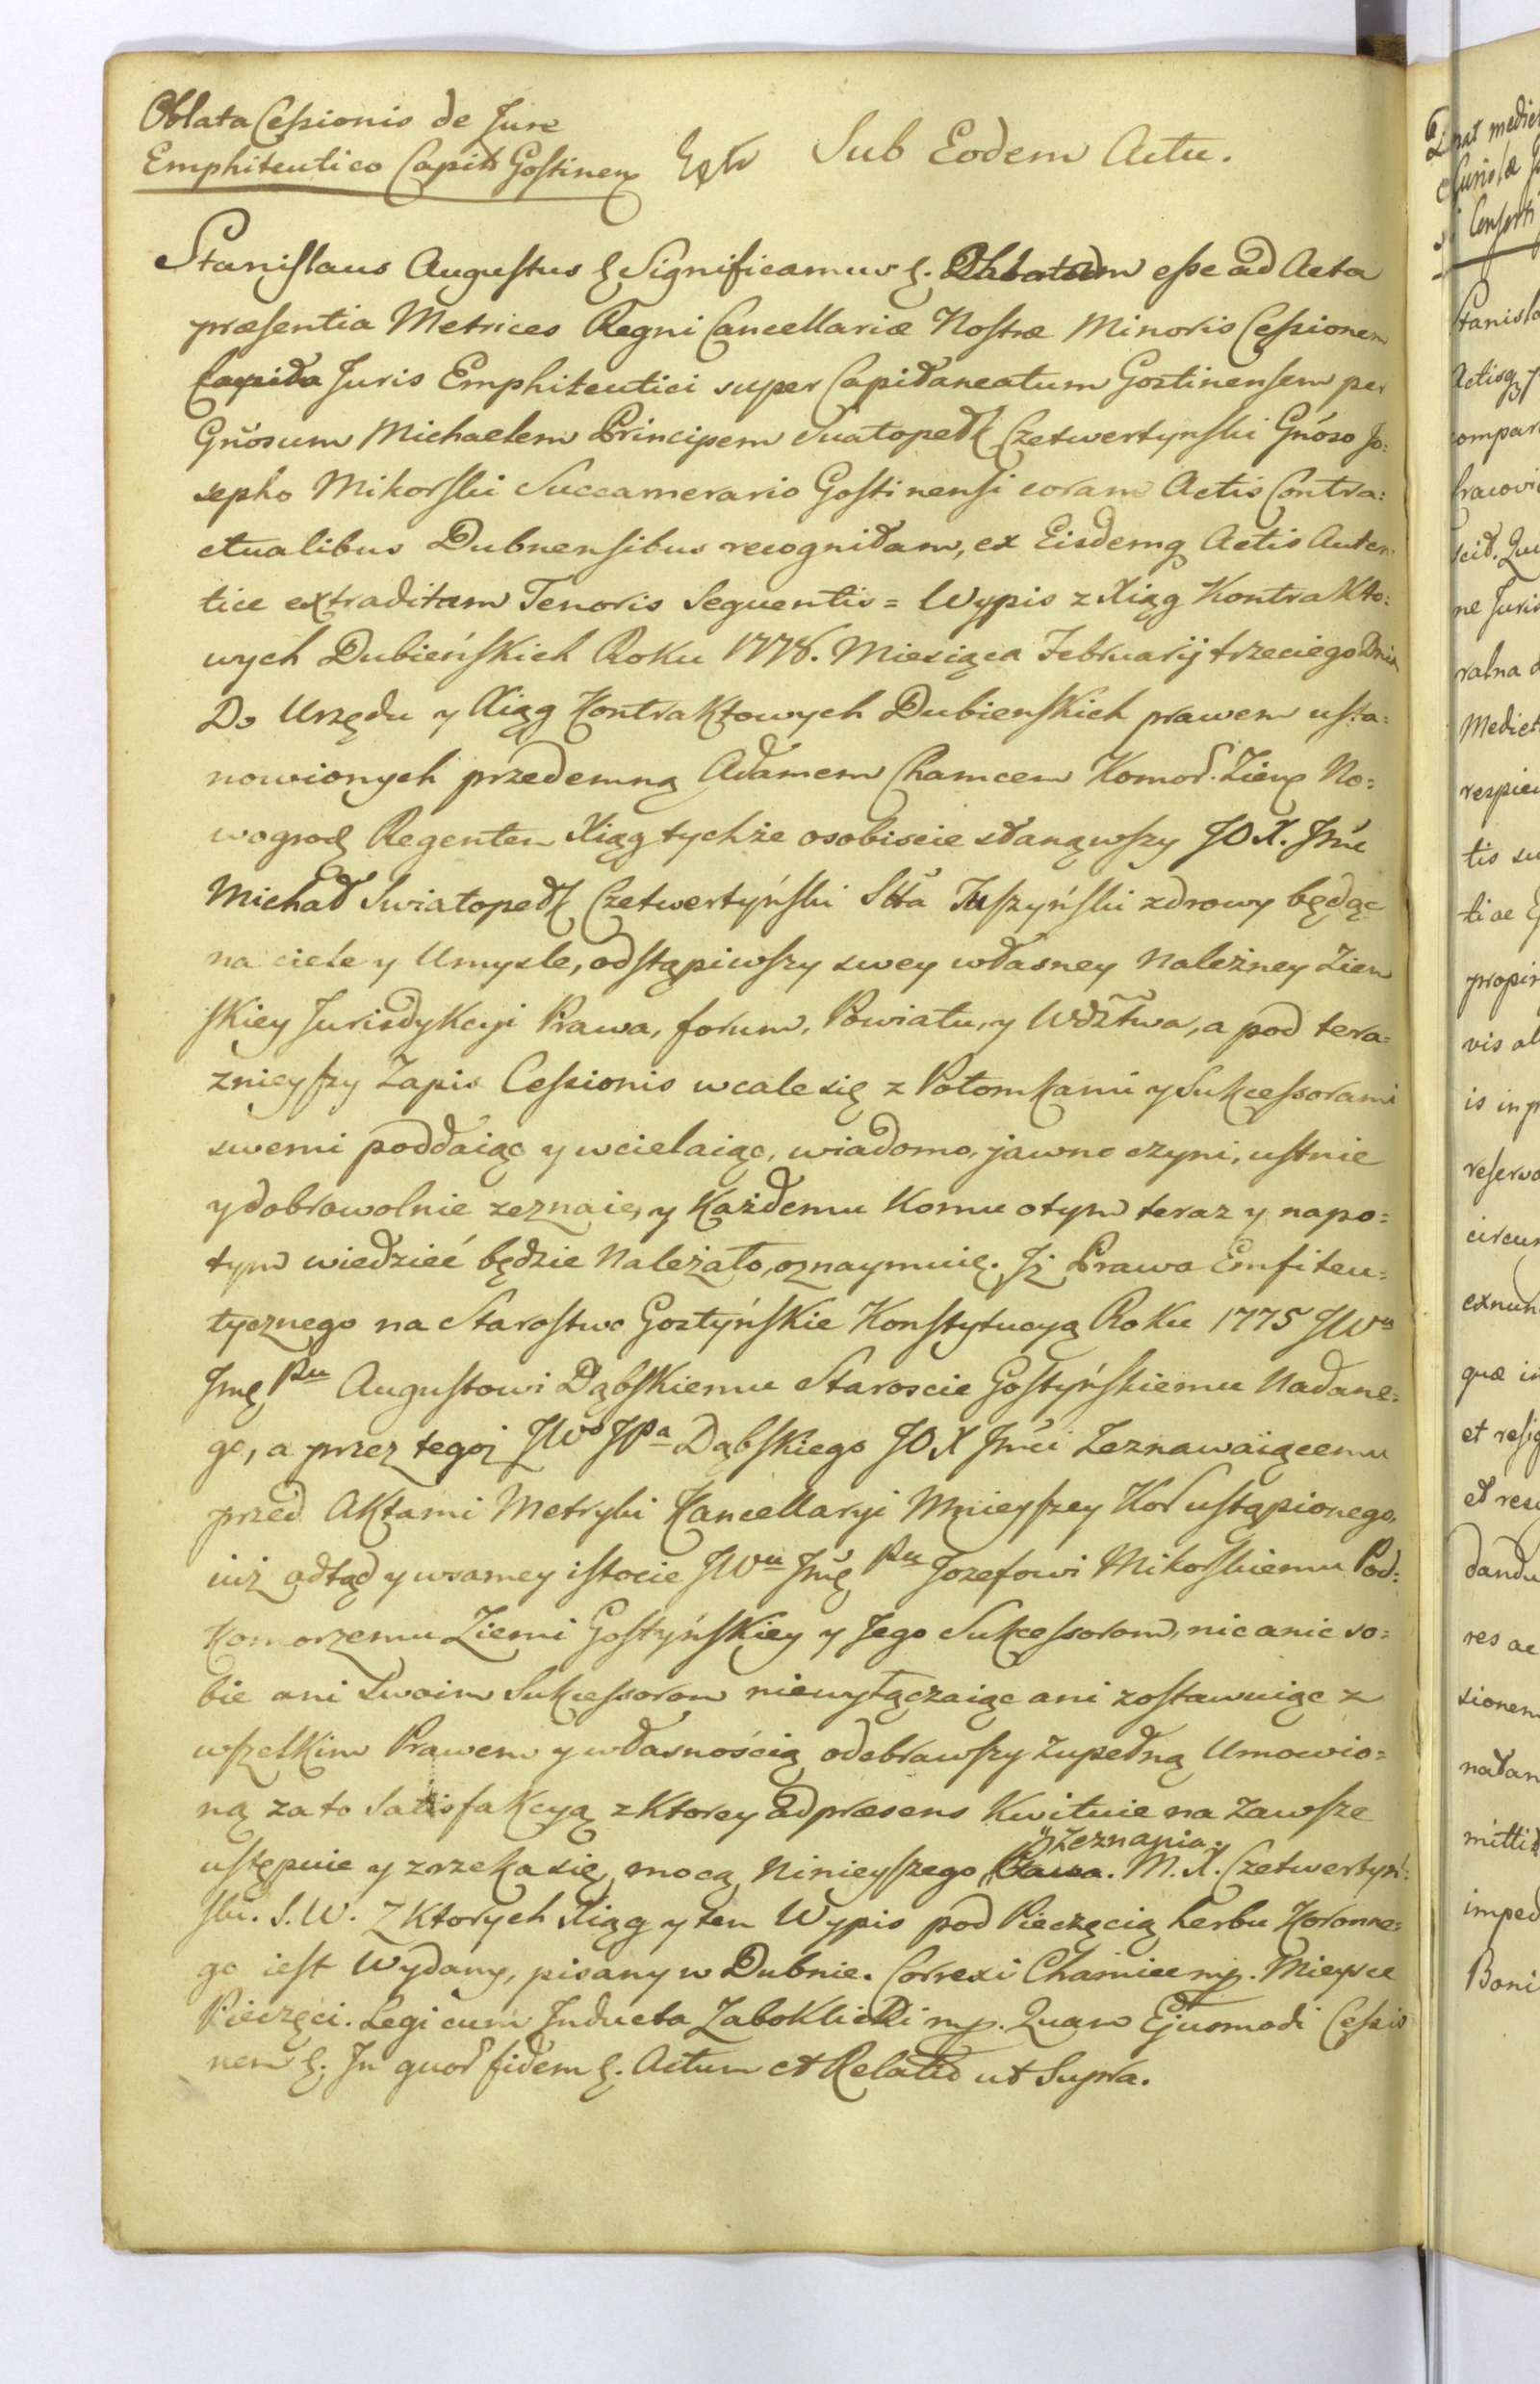 Oblata Cessionis de Jure
Emphiteutico Capit Gostinen
Sub Eodem Actu.
Stanislaus Augustus Significamus. Oblatam esse ad Acta
præsentia Metrices Regni Cancellariæ Nostræ Minoris Cessionem
Juris Emphiteutici super Capitaneatum Gostinensem per
Gnosum Michaelem Principem Swatopełk Czetwertynski Gnoso Jo:
sepho Mikorski Succamerario Gostinensi coram Actis Contra:
ctualibus Dubnensibus recognitam, ex Eisdemq Actis Auten
tice extraditam Tenoris Sequentis = Wypis z Xiąg Kontrakto:
wych Dubieńskich Roku 1778. Miesiąca Februarij trzeciego Dnia
Do Urzędu y Xiąg Kontraktowych Dubienskich prawem usta:
nowionych przedemną Adamem Chamcem Komor. Ziem No:
wogrod Regentem Xiąg tychże osobiscie stanąwszy JOX. Jmć
Michał Swiatopełk Czetwertyński Stta Tuszyński zdrowy będąc
na ciele y Umysle, odstąpiwszy swey własney Należney Ziem
skiey Jurisdykcyi Prawa, forum, Powiatu, y Wdztwa, a pod tera:
znieyszy Zapis Cessionis wcale się z Potomkami y Sukcessorami
swemi poddaiąc y wcielaiąc, wiadomo, jawno czyni, ustnie
y dobrowolnie zeznaie, y Każdemu Komu o tym teraz y napo:
tym wiedzieć będzie Należało, oznaymuie. Iż Prawa Emfiteu:
tycznego na Starostwo Gostyńskie Konstytucyą Roku 1775 JWu
Jmę Pu Augustowi Dąbskiemu Staroscie Gostyńskiemu Nadane:
go, a przez tegoż JWo JPa Dąbskiego JOX Jmći Zeznawaiącemu
przed Aktami Metryki Kancellaryi Mnieyszey Kor ustąpionego,
iuż odtąd y w samey istocie JWu Jmę Pu Jozefowi Mikorskiemu Pod:
Komorzemu Ziemi Gostyńskiey y Jego Sukcessorom, nic a nic so:
bie ani Swoim Sukcessorom niewyłączaiąc ani zostawuiąc z
wszelkim Prawem y własnością odebrawszy zupełną Umowio:
ną za to Satisfakcyą z Ktorey ad præsens Kwituie na Zawsze
ustępuie y zrzeka się mocą Ninieyszego Zeznania. M. X. Czetwertyń:
ski. S. W. Z Ktorych Xiąg y ten Wypis pod Pieczęcią herbu Koronne:
go iest Wydany, pisany w Dubnie. Correxi Chamiec mp. Mieysce
Pieczęci. Legi cum Inducta Zaboklicki mp. Quam Ejusmodi Cessio
nem. In quor fidem. Actum et Relatio ut Supra.